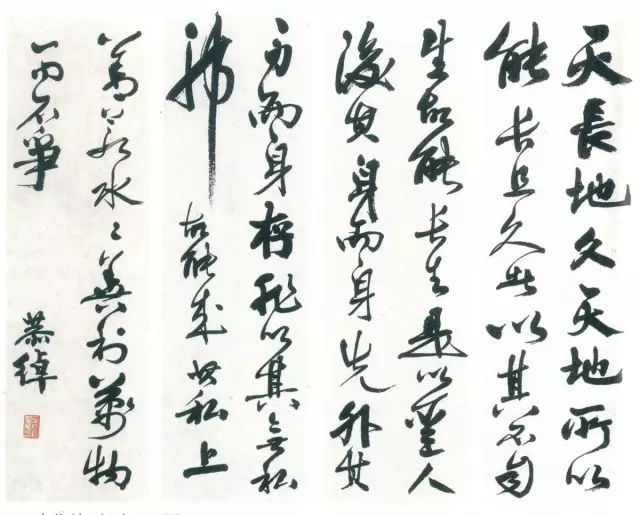 天長地久天地所以
能长且久者以其不自
生故能长生是以聖人
後其身而身先外其
身而身存非以其無私
邪
故能成其私上
善若水〻善利萬物
而不爭